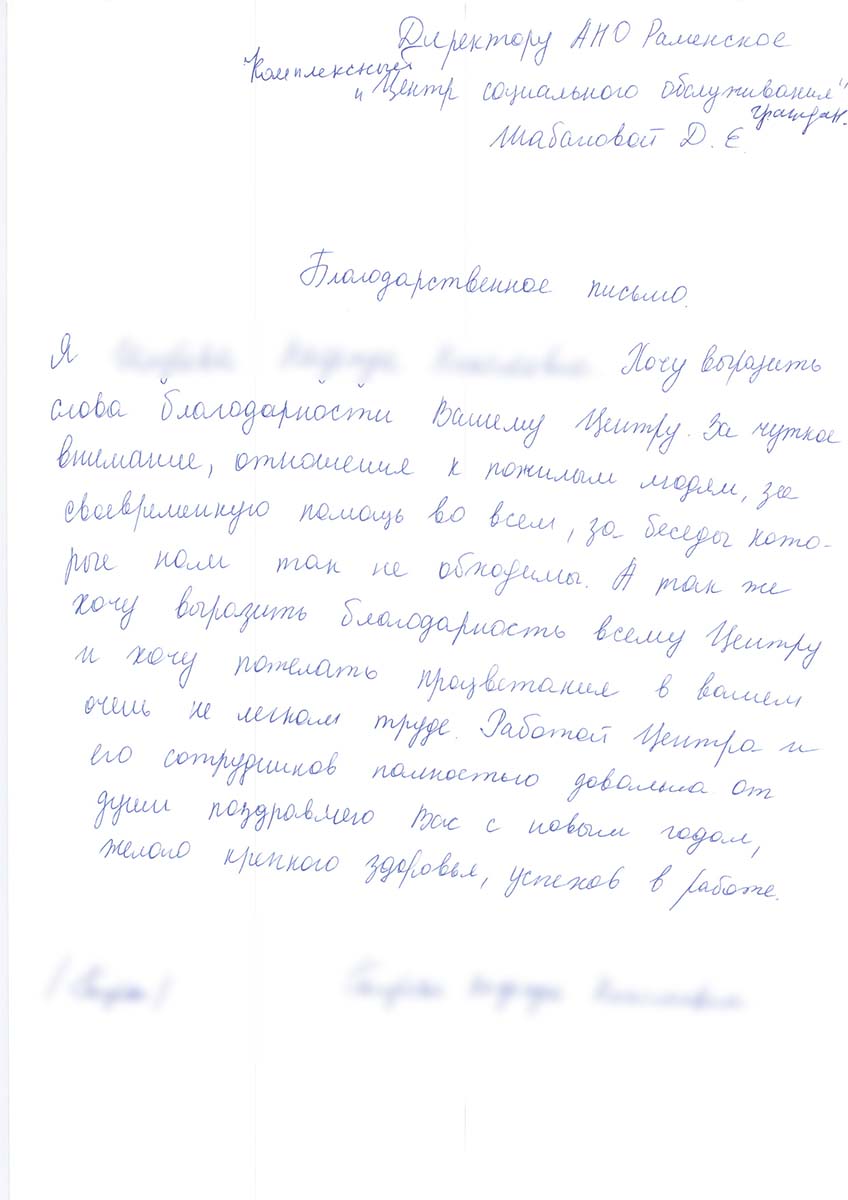 Директору АНО Раменское
"Комплексный
"Центр социального обслуживания"
граждан.
Шабановой Д. Е.
Благодарственное письмо.
Я Хочу выразить
слова благодарности Вашему Центру. За чуткое
внимание, отношения к пожилым людям, за
своевременную помощь во всем, за беседы кото-
рые нам так не обходимы. А так же
хочу выразить благодарность всему Центру
и хочу пожелать процветания в вашем
очень не легком труде. Работой Центра и
его сотрудников полностью довольна от
души поздравляю Вас с новым годом,
желаю крепкого здоровья, успехов в работе.